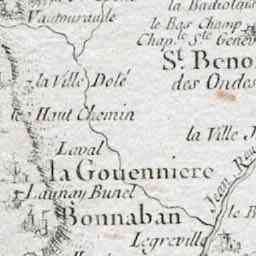 la Badiolais
Vautouraude
le Bas Champ
Chap. Ste Genev
St Beno
des Ondes
la Ville Dolé
le Haut Chemin
la Ville
Laval
la Gouenniere
Launay Bunel
Jean
le B
Bonnaban
Legreville